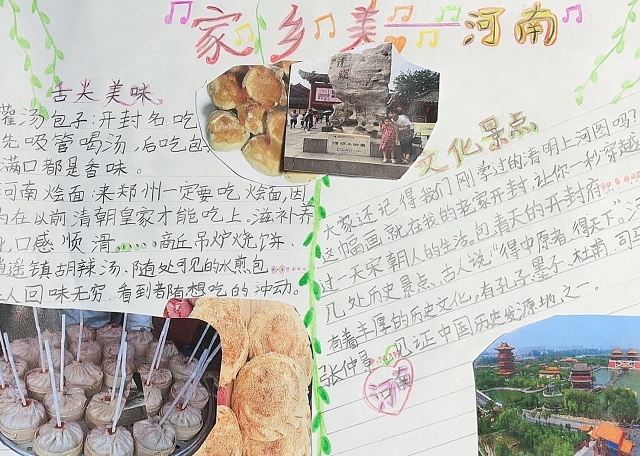 家乡美——河南
舌尖美味
灌汤包子:开封名吃
先吸管喝汤,后吃包
满口都是香味。
河南烩面:来郑州一定要吃烩面,因
在以前清朝皇家才能吃上。滋补养
口感顺滑……商丘吊炉烧饼、
逍遥镇胡辣汤、随处可见的水煎包……
人回味无穷,看到都有想吃的冲动。
文化景点
大家还记得我们刚学过的清明上河图吗?
这幅画,就在我的老家开封,让你一秒穿越
过一天宋朝人的生活。包青天的开封府……
几处历史景点,古人说:“得中原者,得天下。”
有着丰厚的历史文化,有孔子、墨子、杜甫、司马
张仲景,见证中国历史发源地之一。
河南